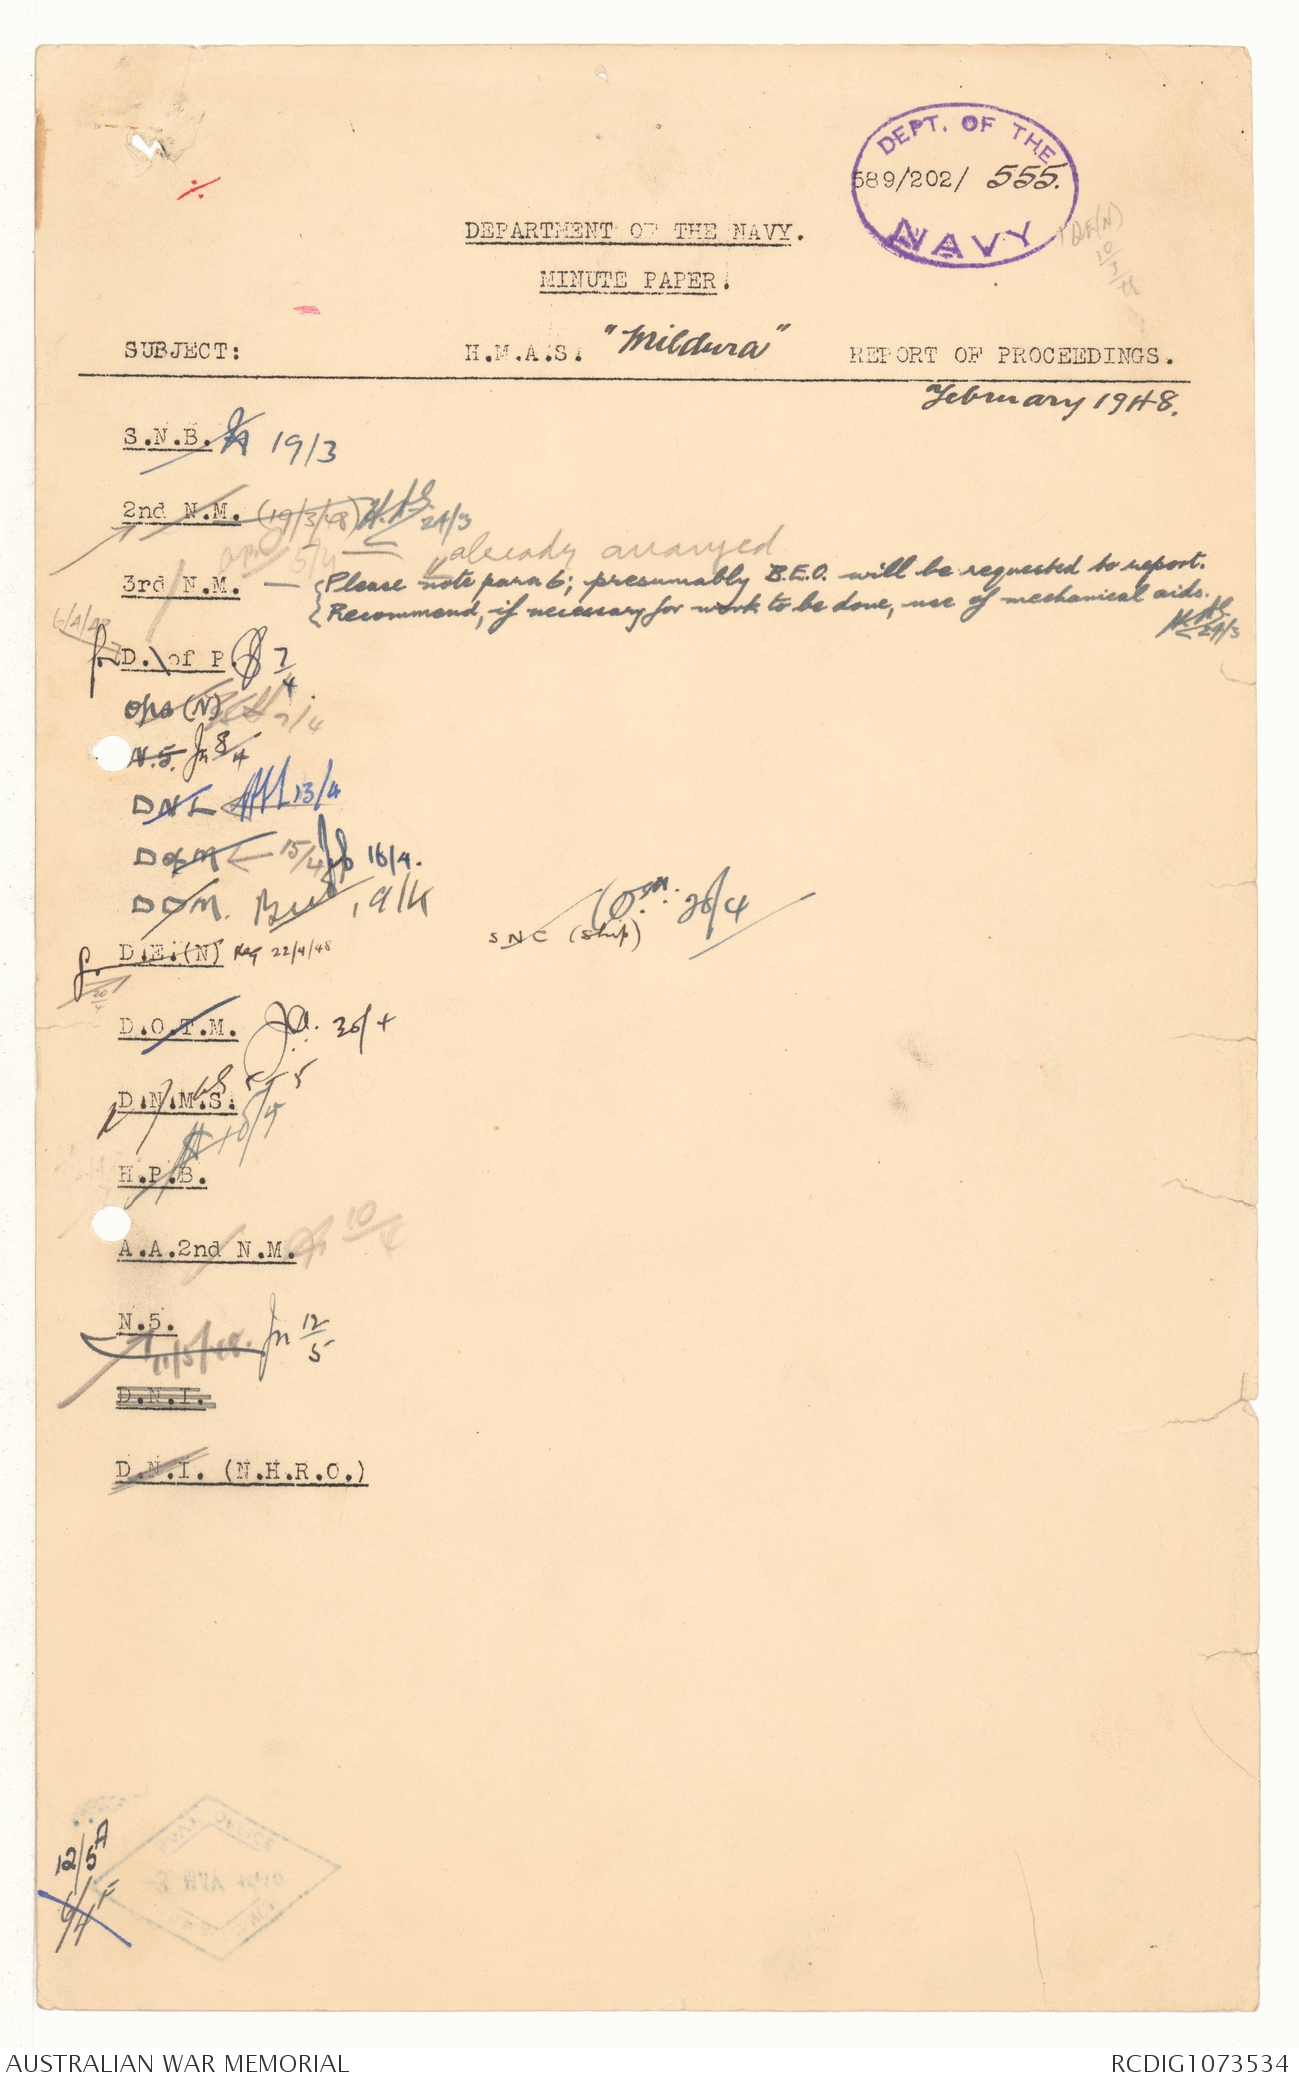 DEPT. OF THE
589/202/ 555.
NAVY
DEPARTMENT OF THE NAVY.
MINUTE PAPER.
SUBJECT: H.M.A.S. "Mildura" REPORT OF PROCEEDINGS.
February 1948.
S.N.B. 19/3
2nd N.M. (19/3/48) 24/3
already arranged
3rd N.M. — Please note para 6; presumably B.E.O. will be requested to report.
Recommend, if necessary for work to be done, use of mechanical aids.
24/3
D. of P. 7/4
Ops (N) 7/4
N.5. Jn 8/4
DNI 13/4
15/4 16/4.
DOM. 19/4
SNC (ship) 28/4
D.E.(N) 22/4/48
D.O.T.M. 30/4
D.N.M.S. 5/5
H.P.B. 10/5
A.A.2nd N.M. 10/5
N.5. 11/5/48 Jn 12/5
D.N.I.
D.N.I. (N.H.R.O.)
12/5 A
6/4 F
AUSTRALIAN WAR MEMORIAL RCDIG1073534